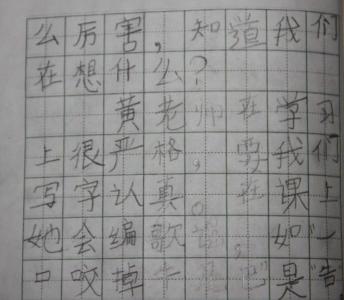 么厉害，知道我们
在想什么？
黄老师在学习
上很严格，要我们
写字认真。在课上
她会编歌，如“一
口咬掉牛是“告